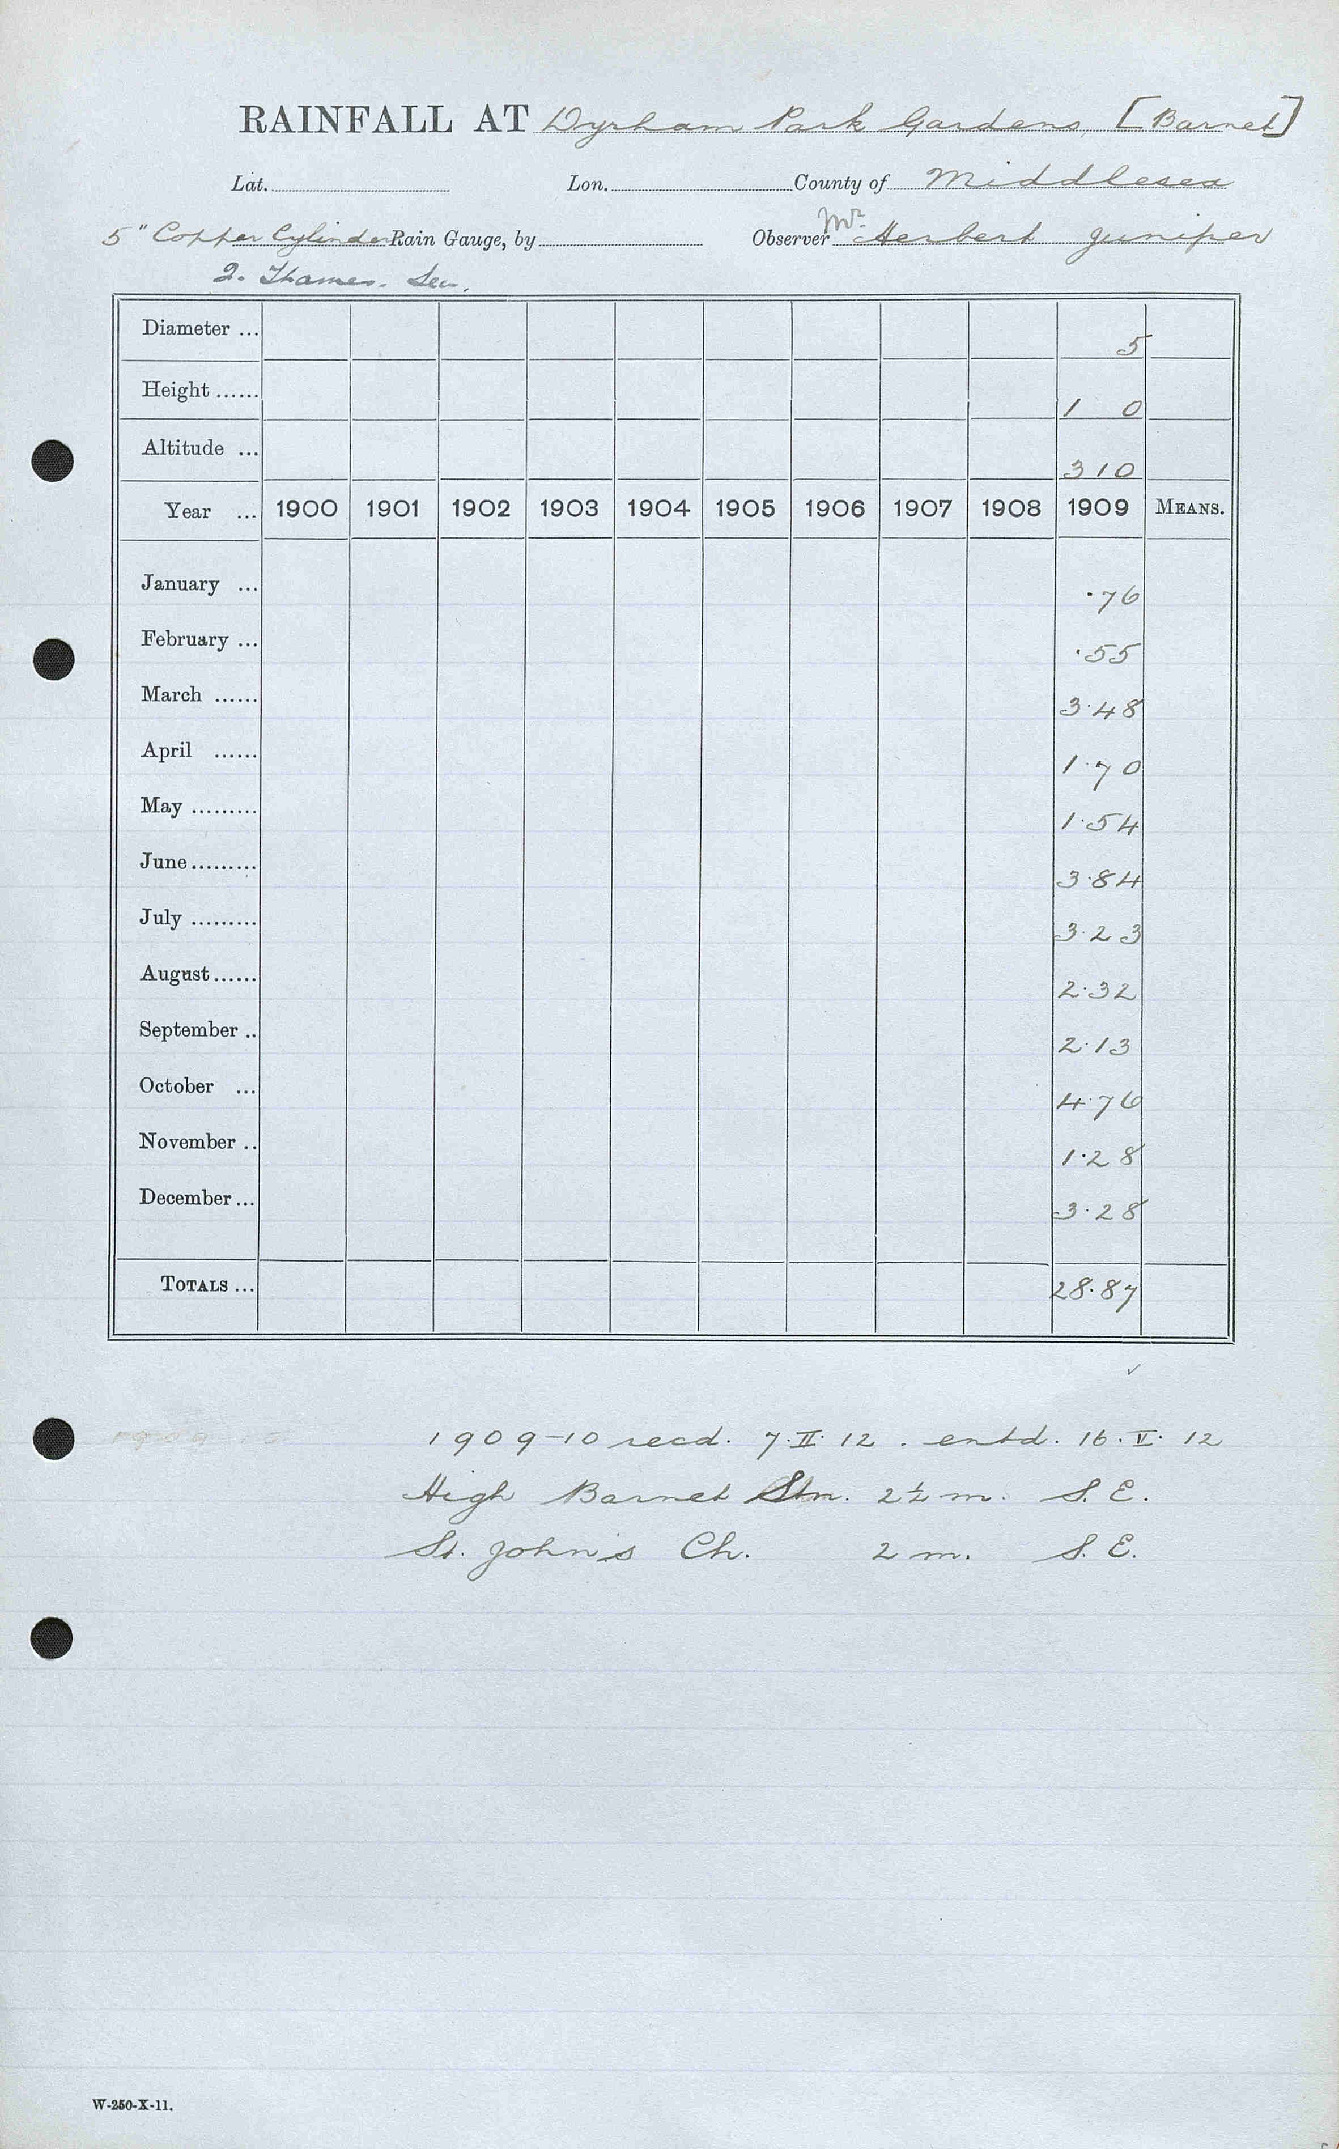 RAINFALL AT Dyrham Park Gardens, [Barnet]
Lat. Lon. County of Middlesex
5" Copper Cylinder Rain Gauge, by Observer Mr. Herbert Juniper
2. Thames. Lea.
Diameter ... 5
Height ...... 1 0
Altitude ... 310
Year ... 1900 1901 1902 1903 1904 1905 1906 1907 1908 1909 MEANS.
January ... .76
February ... .55
March ...... 3.48
April ...... 1.70
May ......... 1.54
June ......... 3.84
July ......... 3.23
August ...... 2.32
September .. 2.13
October ... 4.76
November .. 1.28
December ... 3.28
TOTALS ... 28.87
1909-10 recd. 7.II.12. entd. 16.V.12
High Barnet Stn. 2½ m. S.E.
St. John's Ch. 2 m. S.E.
W-250-X-11.